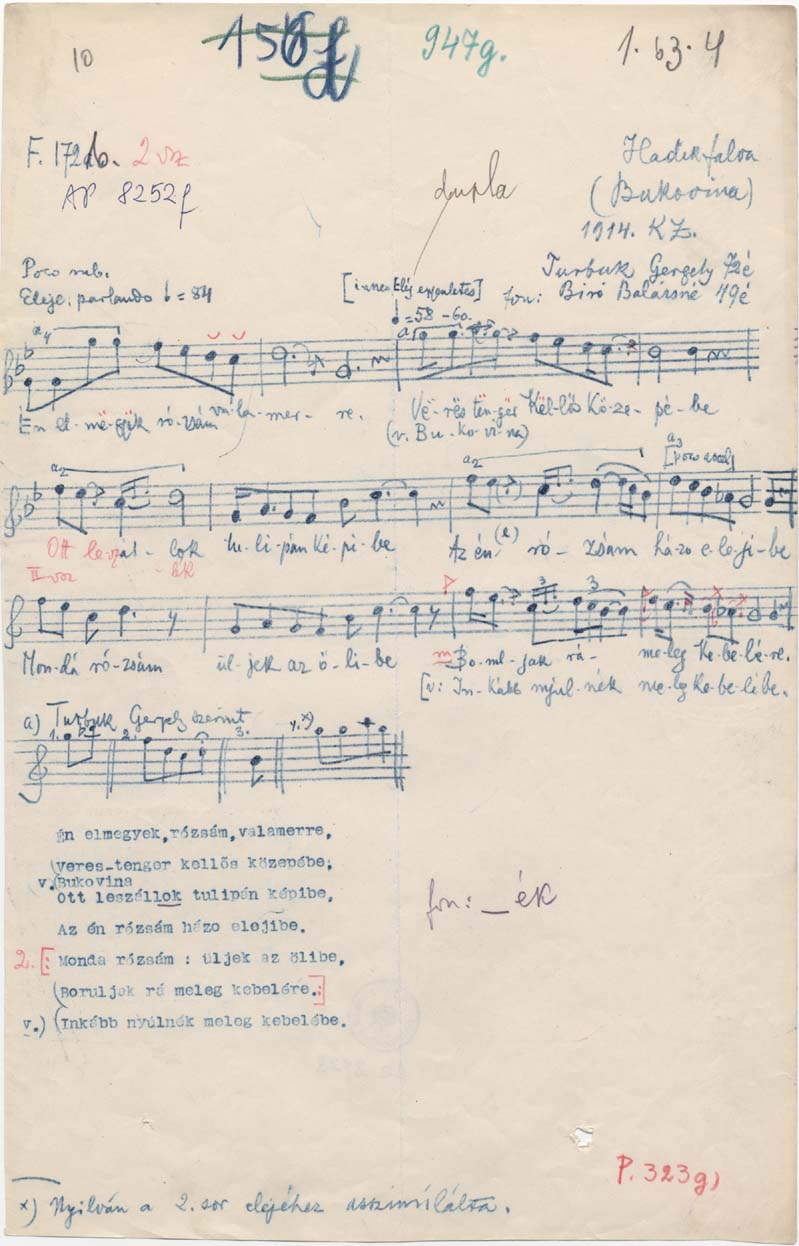 10
947g.
1. 63. 4
F. 172 b. 2 vsz
AP 8252f
dupla
Hadikfalva
(Bukovina)
1914. KZ.
Turbuk Gergely 72é
fon: Biró Balázsné 49é
Poco rub.
Eleje: parlando ♩ = 84
♩ = 58 - 60.
Én el-më-gyëk ró-zsám va-la-mer-re. Vë-rës tën-gër Kël-lős Kö-ze-pé-be
(v. Bu-ko-vi-na)
a2 a2 a3 [poco accel.]
Ott le-szál-lok tu-li-pán ké-pi-be Az én ró-zsám há-zo e-le-ji-be
II vsz
Mon-dá ró-zsám ül-jek az ö-li-be Bo-rul-jak rá- me-leg Ke-be-lé-re.
[v: In-kább nyúl-nék me-leg Ke-be-li-be.
a) Turbuk Gergely szerint
1. 2. 3. 4. x)
Én elmegyek, rózsám, valamerre,
(veres-tenger kellős közepébe;
v.(Bukovina
Ott leszállok tulipán képibe,
Az én rózsám házo elejibe.
fon: _ék
2. [: Monda rózsám : üljek az ölibe,
(Boruljek rá meleg kebelére.:]
v.) (Inkább nyúlnék meleg kebelébe.
P. 323g)
x) Nyilván a 2. sor elejéhez asszimilálta.